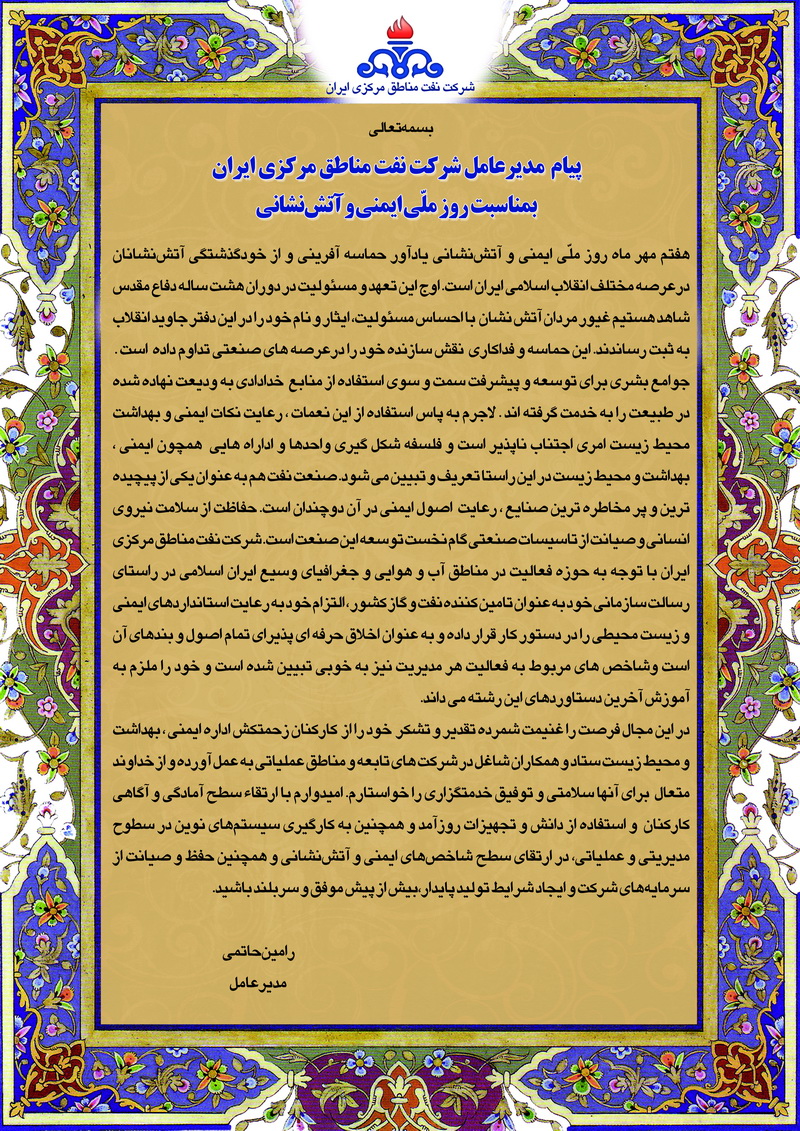 شرکت نفت مناطق مرکزی ایران
بسمه‌تعالی
پیام مدیرعامل شرکت نفت مناطق مرکزی ایران
بمناسبت روز ملّی ایمنی و آتش‌نشانی
هفتم مهر ماه روز ملّی ایمنی و آتش‌نشانی یادآور حماسه آفرینی و از خودگذشتگی آتش‌نشانان
در عرصه مختلف انقلاب اسلامی ایران است. اوج این تعهد و مسئولیت در دوران هشت ساله دفاع مقدس
شاهد هستیم غیور مردان آتش نشان با احساس مسئولیت، ایثار و نام خود را در این دفتر جاوید انقلاب
به ثبت رساندند. این حماسه و فداکاری نقش سازنده خود را در عرصه های صنعتی تداوم داده است .
جوامع بشری برای توسعه و پیشرفت سمت و سوی استفاده از منابع خدادادی به ودیعت نهاده شده
در طبیعت را به خدمت گرفته اند . لاجرم به پاس استفاده از این نعمات ، رعایت نکات ایمنی و بهداشت
محیط زیست امری اجتناب ناپذیر است و فلسفه شکل گیری واحدها و اداراه هایی همچون ایمنی ،
بهداشت و محیط زیست در این راستا تعریف و تبیین می شود. صنعت نفت هم به عنوان یکی از پیچیده
ترین و پر مخاطره ترین صنایع ، رعایت اصول ایمنی در آن دوچندان است. حفاظت از سلامت نیروی
انسانی و صیانت از تاسیسات صنعتی گام نخست توسعه این صنعت است. شرکت نفت مناطق مرکزی
ایران با توجه به حوزه فعالیت در مناطق آب و هوایی و جغرافیای وسیع ایران اسلامی در راستای
رسالت سازمانی خود به عنوان تامین کننده نفت و گاز کشور ، التزام خود به رعایت استانداردهای ایمنی
و زیست محیطی را در دستور کار قرار داده و به عنوان اخلاق حرفه ای پذیرای تمام اصول و بندهای آن
است وشاخص های مربوط به فعالیت هر مدیریت نیز به خوبی تبیین شده است و خود را ملزم به
آموزش آخرین دستاوردهای این رشته می داند.
در این مجال فرصت را غنیمت شمرده تقدیر و تشکر خود را از کارکنان زحمتکش اداره ایمنی ، بهداشت
و محیط زیست ستاد و همکاران شاغل در شرکت های تابعه و مناطق عملیاتی به عمل آورده و از خداوند
متعال برای آنها سلامتی و توفیق خدمتگزاری را خواستارم. امیدوارم با ارتقاء سطح آمادگی و آگاهی
کارکنان و استفاده از دانش و تجهیزات روزآمد و همچنین به کارگیری سیستم‌های نوین در سطوح
مدیریتی و عملیاتی، در ارتقای سطح شاخص‌های ایمنی و آتش‌نشانی و همچنین حفظ و صیانت از
سرمایه‌های شرکت و ایجاد شرایط تولید پایدار،بیش از پیش موفق و سربلند باشید.
رامین‌حاتمی
مدیرعامل